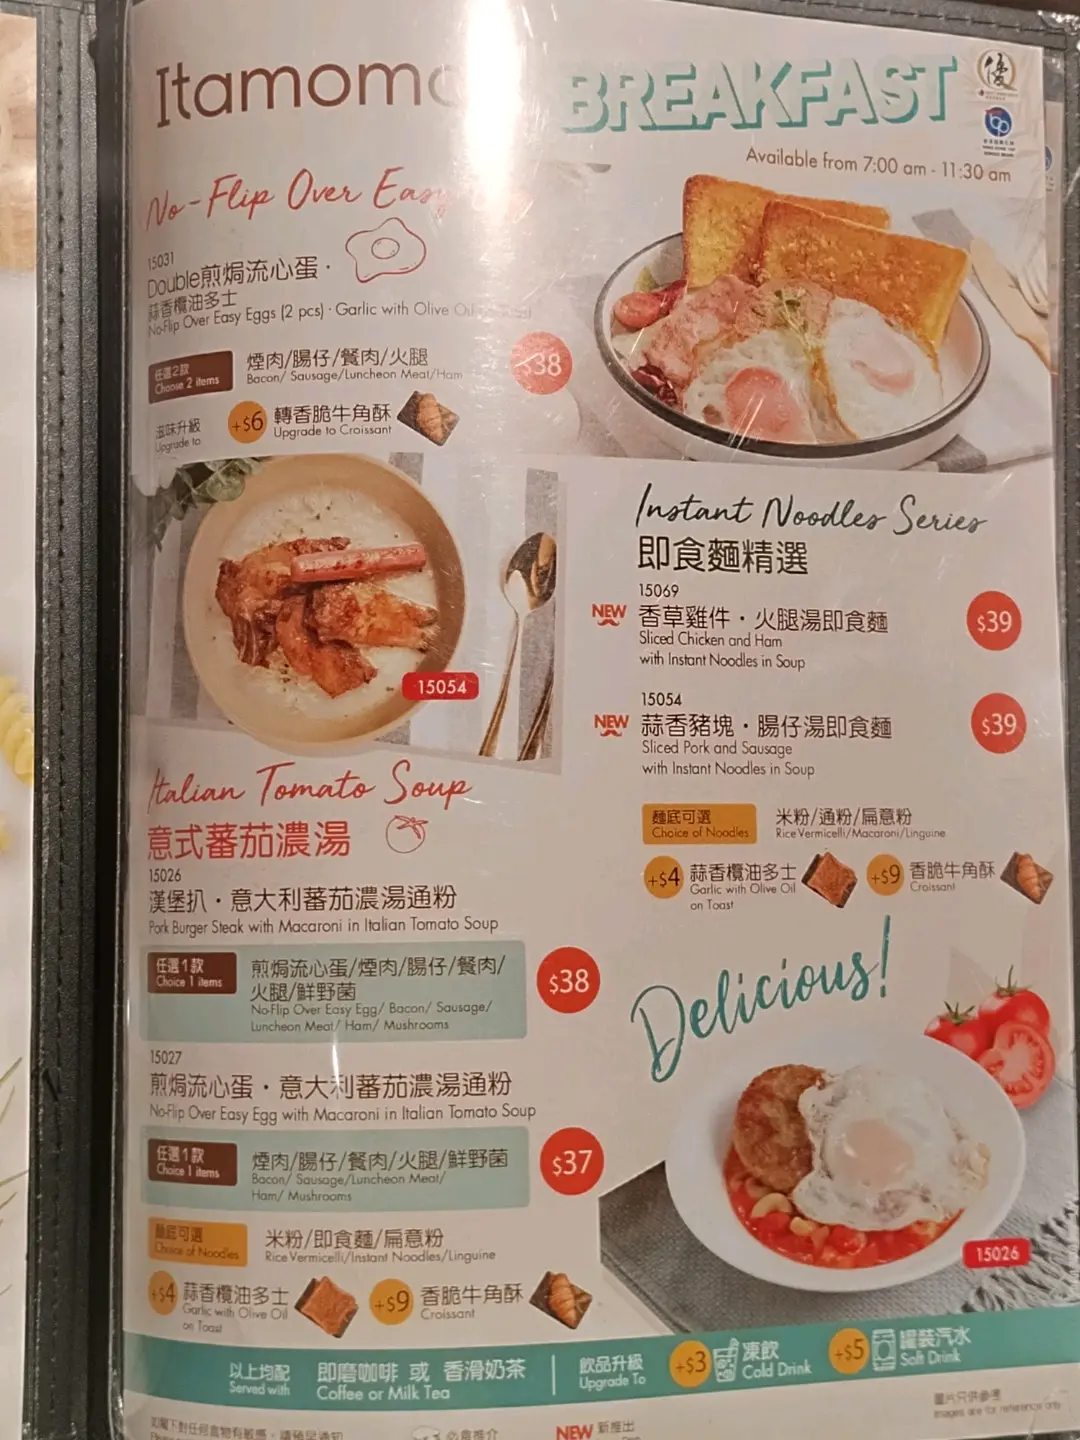 Itamomo
BREAKFAST
優
Available from 7:00 am - 11:30 am
No-Flip Over Easy
15031
Double煎焗流心蛋·
蒜香欖油多士
No-Flip Over Easy Eggs (2 pcs) · Garlic with Olive Oil
任選2款
Choose 2 items
煙肉/腸仔/餐肉/火腿
Bacon/ Sausage/Luncheon Meat/Ham
$38
滋味升級
Upgrade to
+$6
轉香脆牛角酥
Upgrade to Croissant
15054
Instant Noodles Series
即食麵精選
15069
NEW
香草雞件·火腿湯即食麵
Sliced Chicken and Ham
with Instant Noodles in Soup
$39
15054
NEW
蒜香豬塊·腸仔湯即食麵
Sliced Pork and Sausage
with Instant Noodles in Soup
$39
麵底可選
Choice of Noodles
米粉/通粉/扁意粉
Rice Vermicelli/Macaroni/Linguine
+$4
蒜香欖油多士
Garlic with Olive Oil
on Toast
+$9
香脆牛角酥
Croissant
Italian Tomato Soup
意式蕃茄濃湯
15026
漢堡扒·意大利蕃茄濃湯通粉
Pork Burger Steak with Macaroni in Italian Tomato Soup
任選1款
Choice 1 items
煎焗流心蛋/煙肉/腸仔/餐肉/
火腿/鮮野菌
No-Flip Over Easy Egg/ Bacon/ Sausage/
Luncheon Meat/ Ham/ Mushrooms
$38
15027
煎焗流心蛋·意大利蕃茄濃湯通粉
No-Flip Over Easy Egg with Macaroni in Italian Tomato Soup
任選1款
Choice 1 items
煙肉/腸仔/餐肉/火腿/鮮野菌
Bacon/ Sausage/Luncheon Meat/
Ham/ Mushrooms
$37
麵底可選
Choice of Noodles
米粉/即食麵/扁意粉
Rice Vermicelli/Instant Noodles/Linguine
+$4
蒜香欖油多士
Garlic with Olive Oil
on Toast
+$9
香脆牛角酥
Croissant
Delicious!
15026
以上均配
Served with
即磨咖啡 或 香滑奶茶
Coffee or Milk Tea
飲品升級
Upgrade To
+$3
凍飲
Cold Drink
+$5
罐裝汽水
Soft Drink
圖片只供參考
Images are for reference only
如閣下對任何食物有敏感，請預早通知
必食推介
NEW 新推出